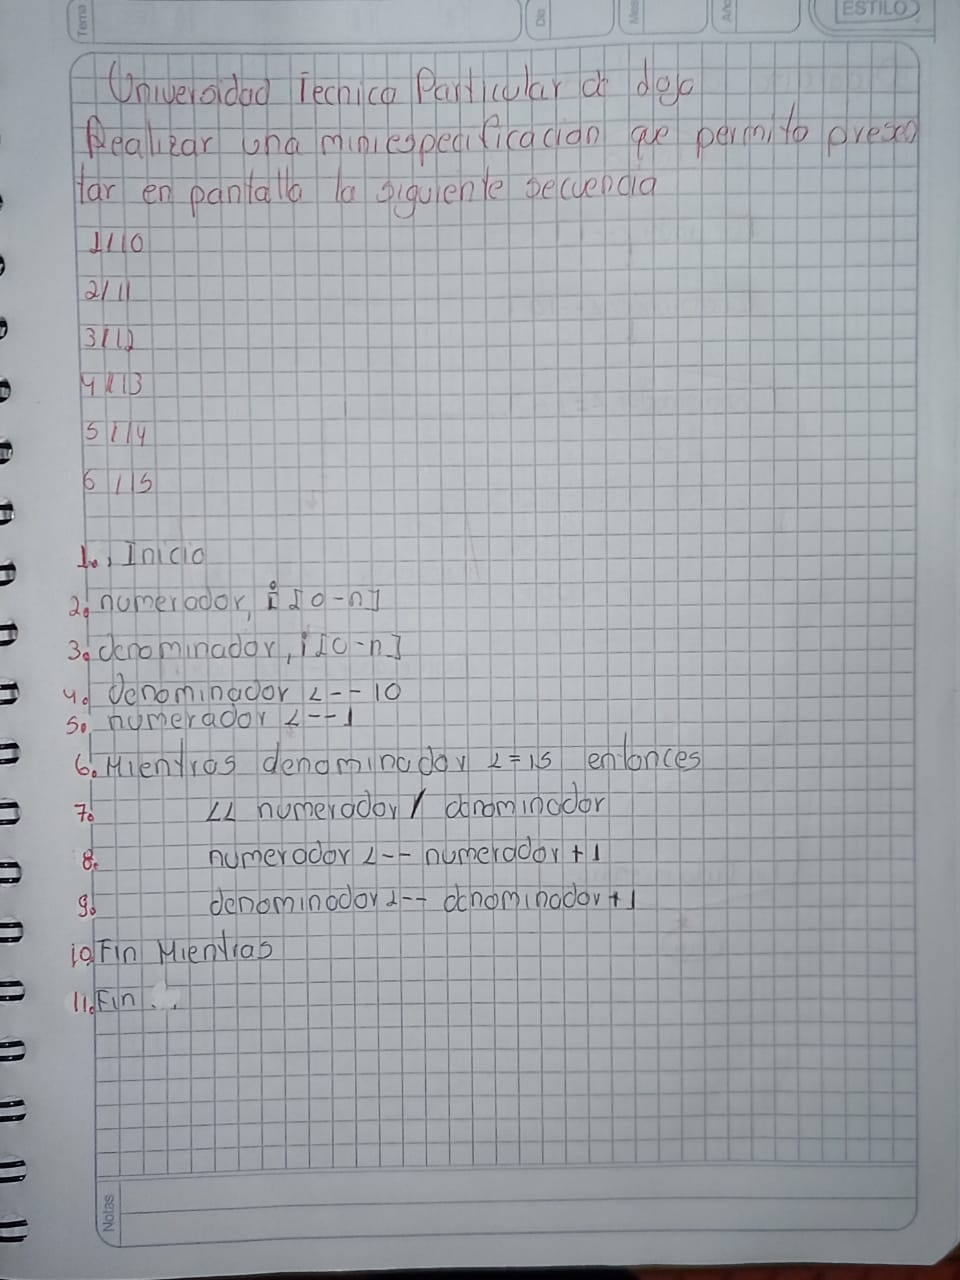 Tema
Dia
Mes
Año
ESTILO
Universidad Tecnica Particular d
Realizar una miniespecificacion que permita presen
tar en pantalla la siguiente secuencia
1/10
2/11
3/12
4/13
5/14
6/15
1. Inicio
2. numerador, i [0-n]
3. denominador, i [0-n]
4. Denominador <-- 10
5. numerador <-- 1
6. Mientras denominador <=15 entonces
7. << numerador / denominador
8. numerador <-- numerador +1
9. denominador <-- denominador +1
10. Fin Mientras
11. Fin..
Notas